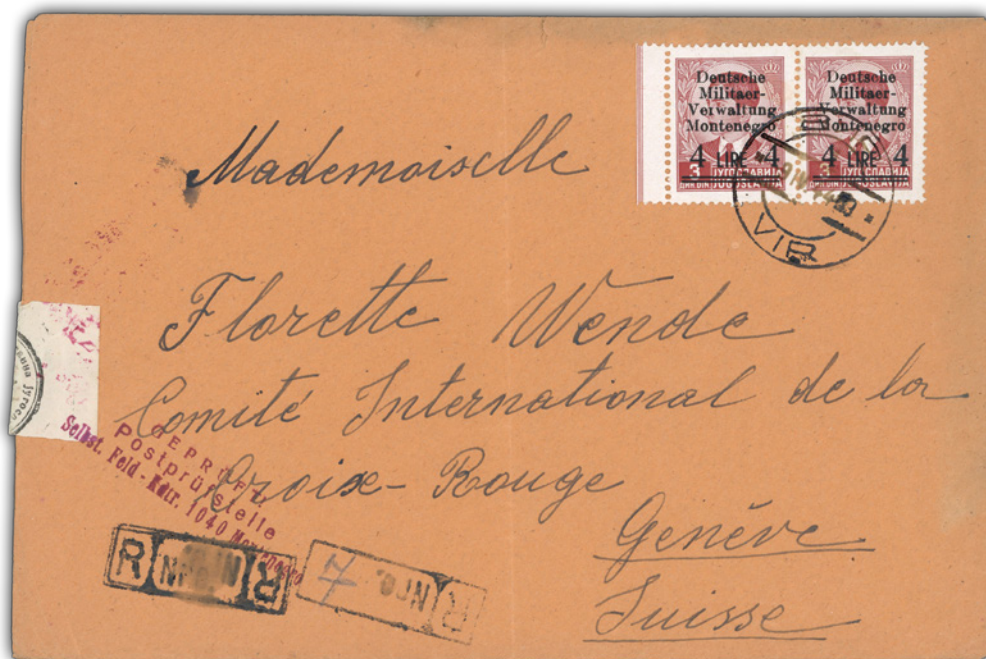 Deutsche
Militaer-
Verwaltung
Montenegro
4 LIRE 4
3 ЈУГОСЛАВИЈА
ДИН DIN JUGOSLAVIJA
Deutsche
Militaer-
Verwaltung
Montenegro
4 LIRE 4
3 ЈУГОСЛАВИЈА
ДИН DIN JUGOSLAVIJA
VIR
Mademoiselle
Florette Wende
Comité International de la
Croix-Rouge
Genève
Suisse
GEPRÜFT
Postprüfstelle
Selbst. Feld-Kdtr. 1040 Montenegro
R Nro. R
7 Nro. R